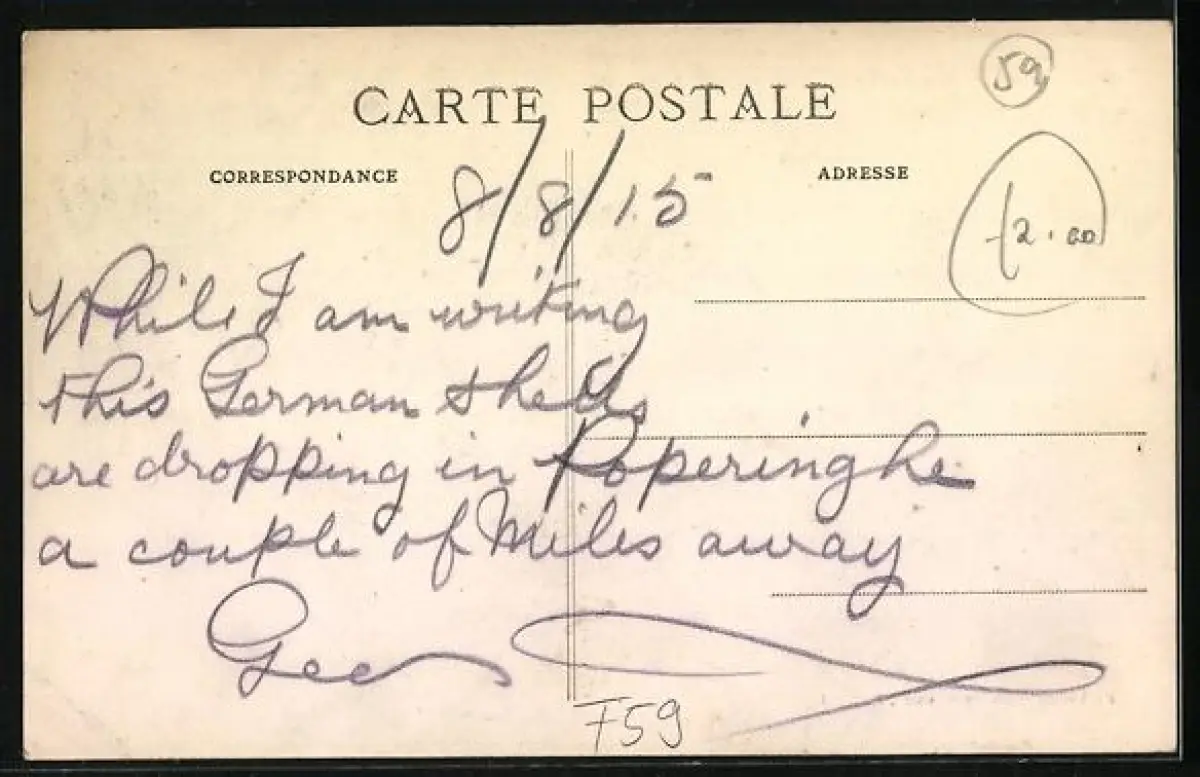 59
CARTE POSTALE
CORRESPONDANCE
ADRESSE
8/8/15
£2.00
While I am writing
this German shells
are dropping in Poperinghe
a couple of Miles away
Geo
F59